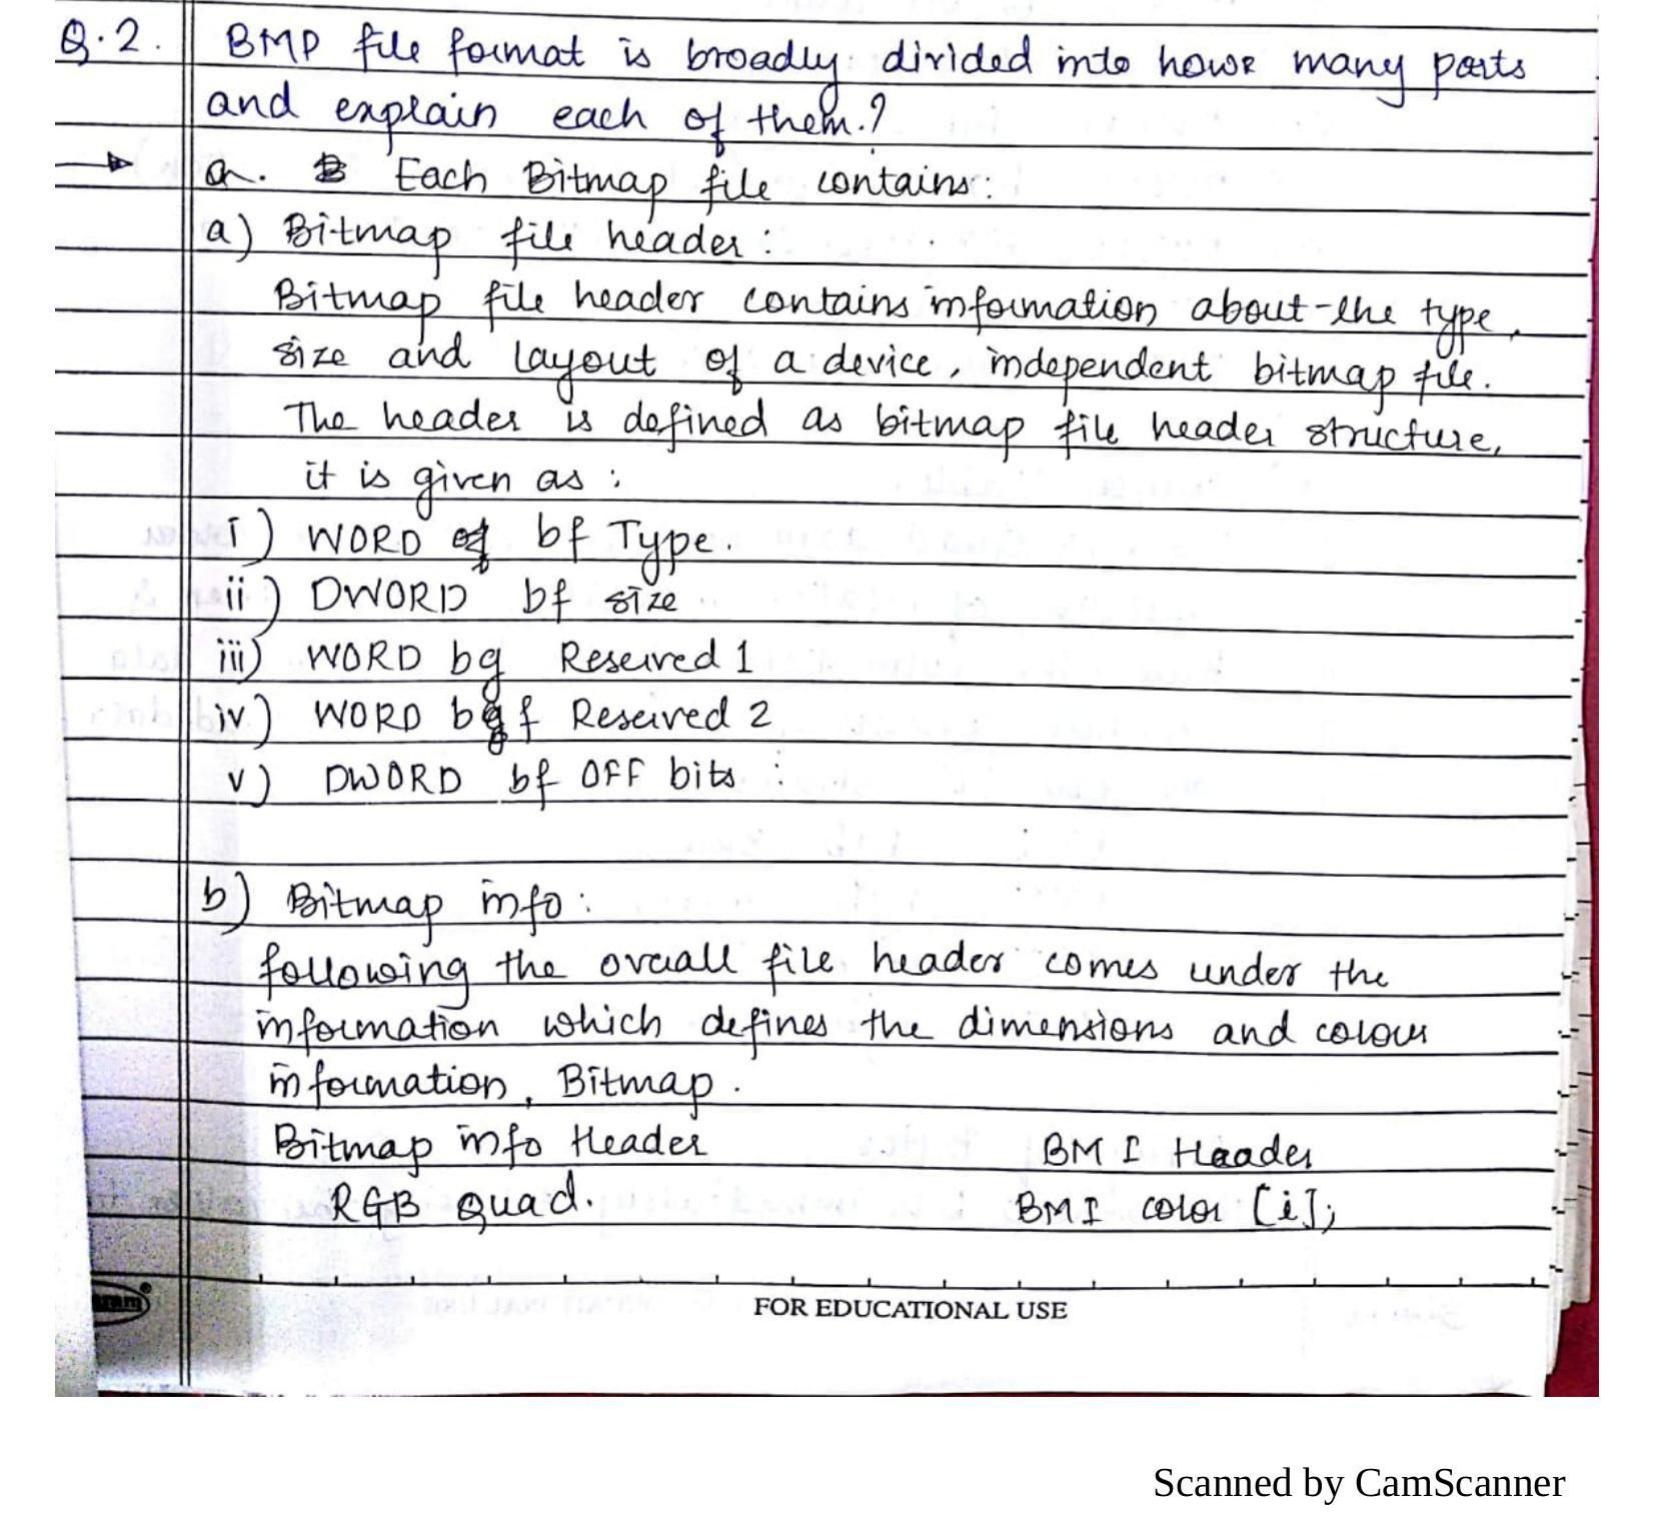 Q.2. BMP file format is broadly divided into how many parts
and explain each of them.?
a. Each Bitmap file contains:
a) Bitmap file header:
Bitmap file header contains information about the type,
size and layout of a device, independent bitmap file.
The header is defined as bitmap file header structure,
it is given as:
i) WORD bf Type.
ii) DWORD bf size
iii) WORD bg Reserved 1
iv) WORD bf Reserved 2
v) DWORD bf OFF bits :
b) Bitmap info:
following the overall file header comes under the
information which defines the dimensions and colour
information, Bitmap.
Bitmap info Header BMI Header
RGB Quad. BMI color [i];
FOR EDUCATIONAL USE
Scanned by CamScanner